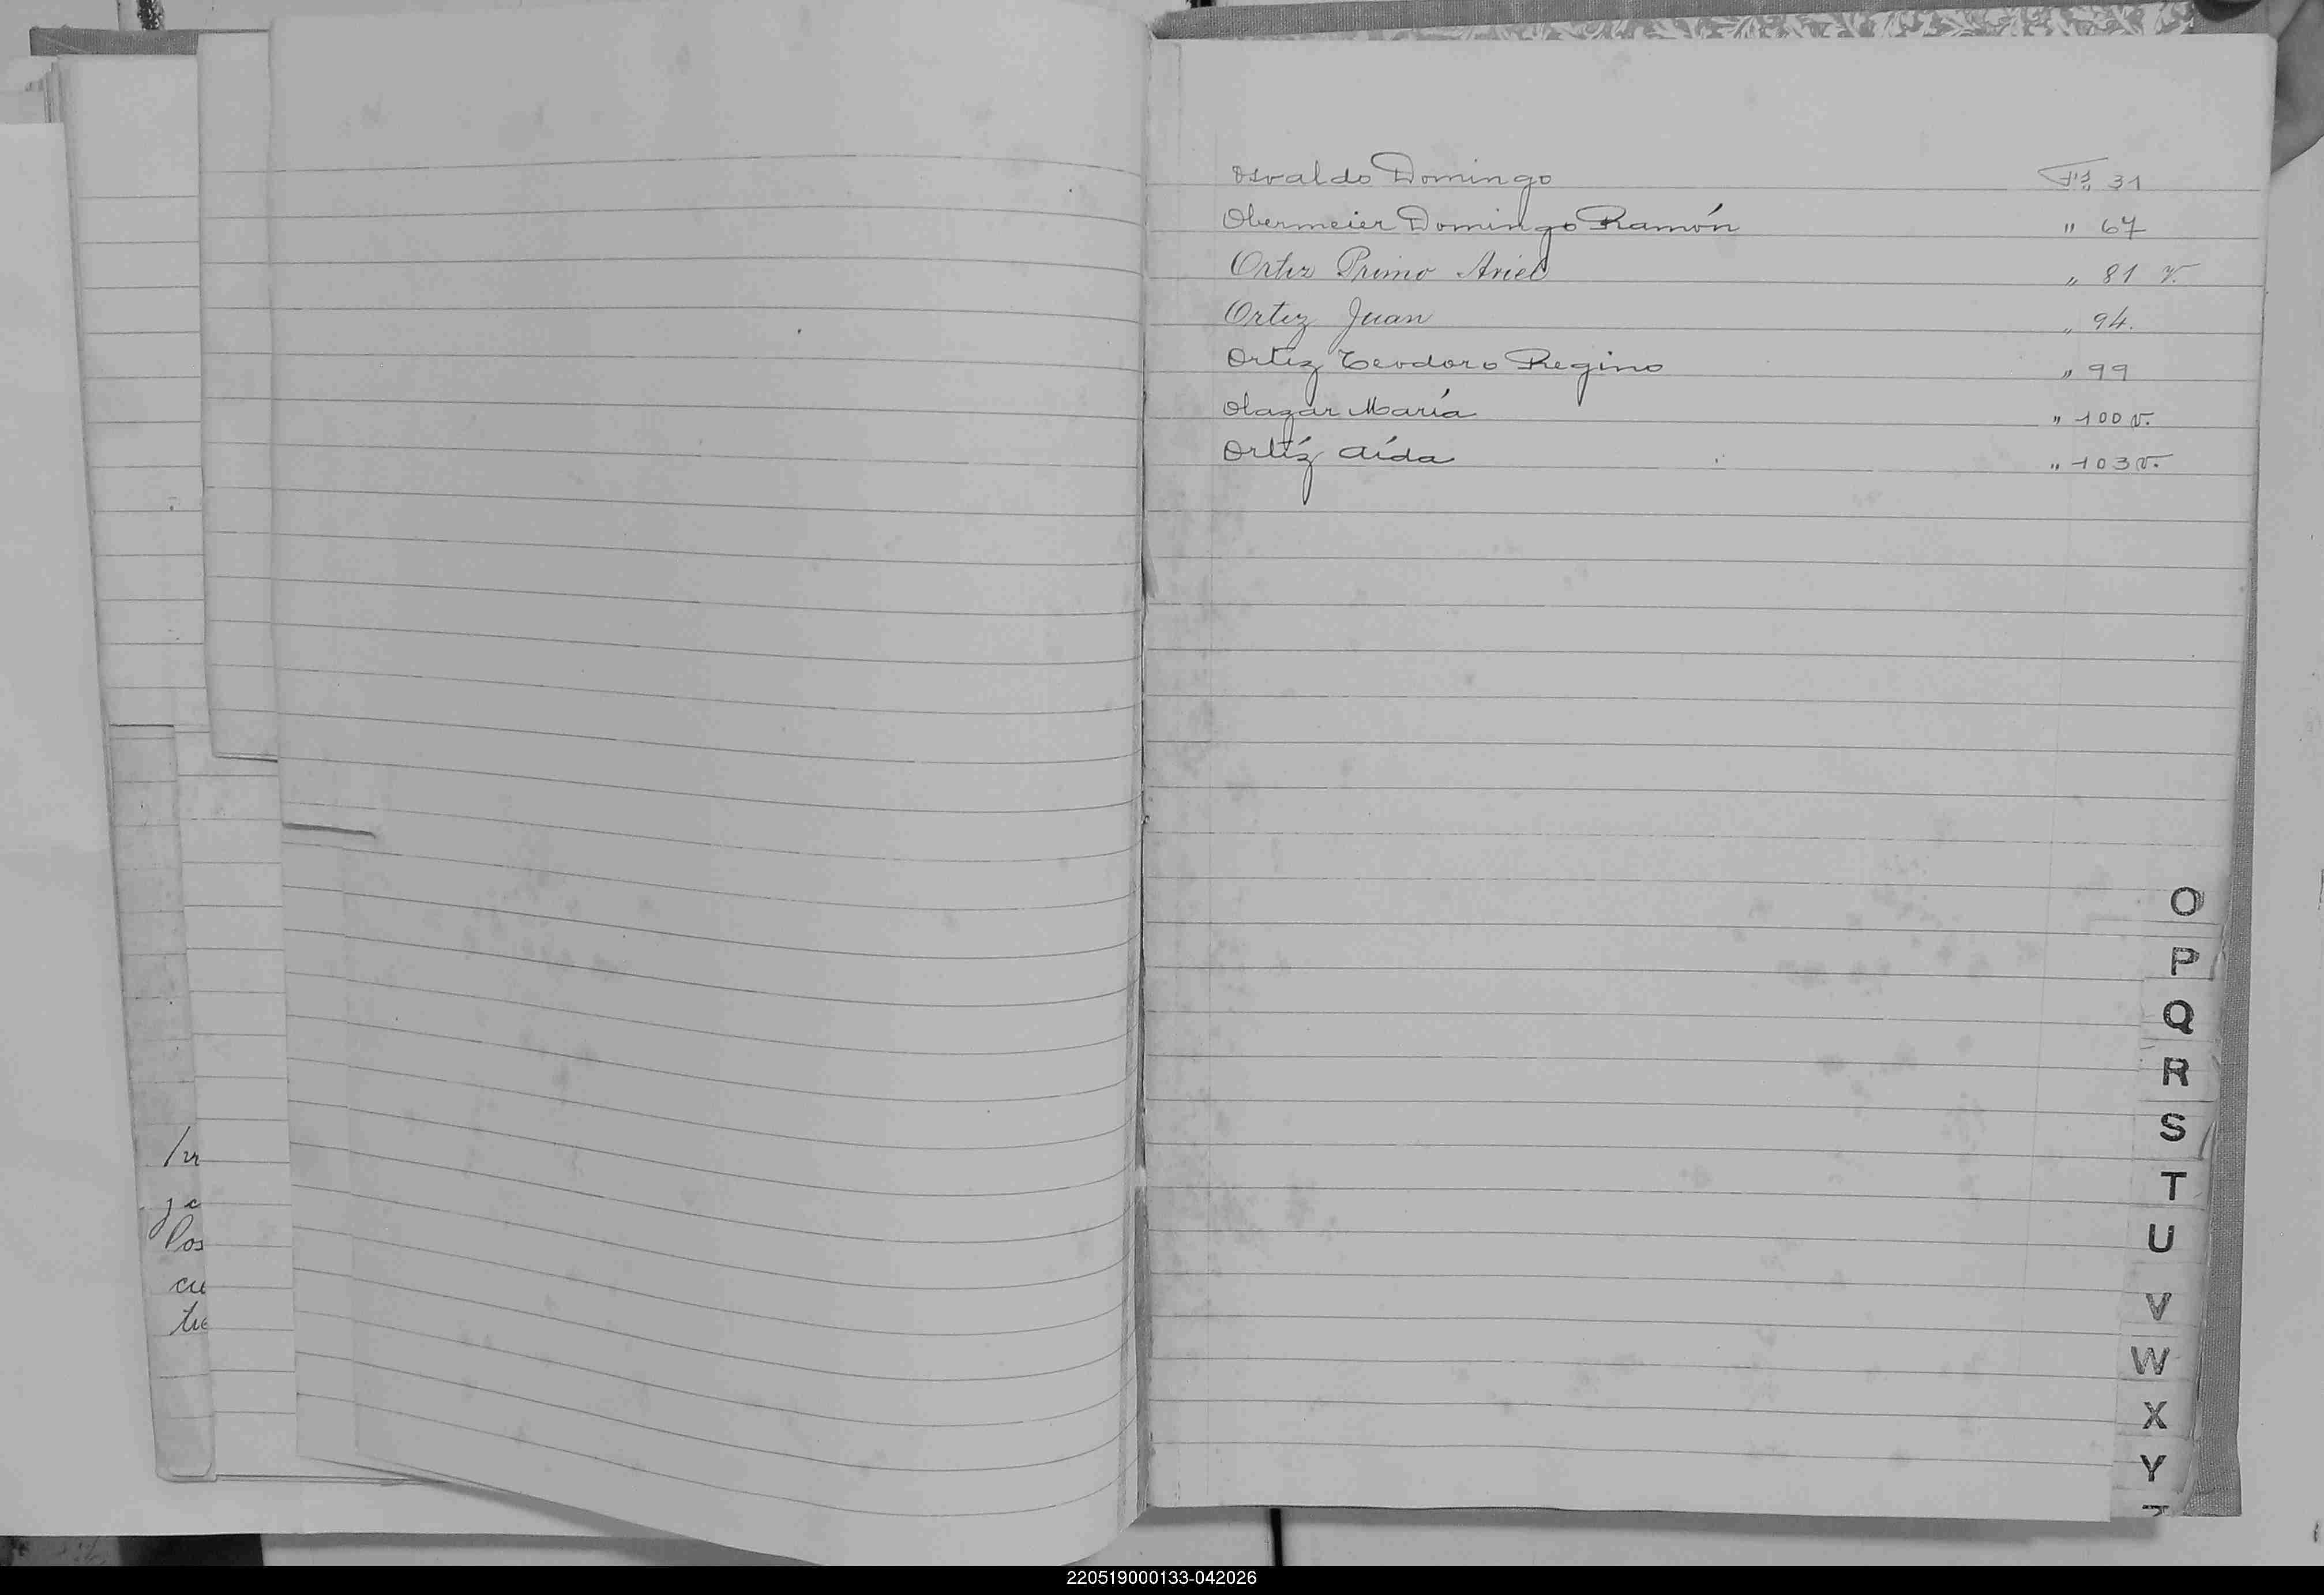 Osvaldo Domingo Fs 31
Obermeier Domingo Ramón " 67
Ortiz Primo Ariel " 81 v.
Ortiz Juan " 94.
Ortiz Teodoro Regino " 99
Olazar María " 100 v.
Ortíz Aída " 103 v.
O
P
Q
R
S
T
U
V
W
X
Y
los
cu
220519000133-042026